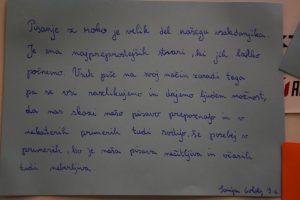 Pisanje z roko je velik del našega vsakdanjika.
Je ena najpreprostejših stvari, ki jih lahko
počnemo. Vsak piše na svoj način zaradi tega
pa se vsi razlikujemo in dajemo ljudem možnost,
da nas skozi našo pisavo prepoznajo in v
nekaterih primerih tudi sodijo, še posebej v
primerih, ko je naša pisava nečitljiva in včasih
tudi neberljiva.
9. a